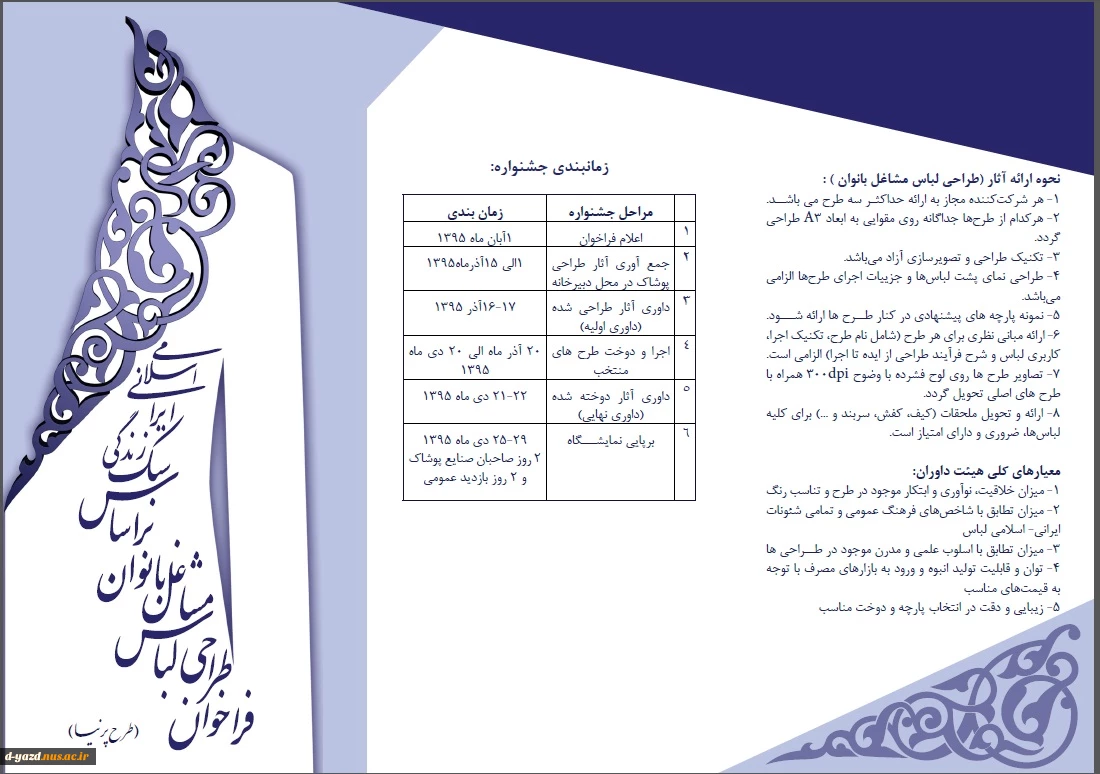 نحوه ارائه آثار (طراحی لباس مشاغل بانوان ) :
۱- هر شرکت‌کننده مجاز به ارائه حداکثـر سه طرح می باشــد.
۲- هرکدام از طرح‌ها جداگانه روی مقوایی به ابعاد A۳ طراحی
گردد.
۳- تکنیک طراحی و تصویرسازی آزاد می‌باشد.
۴- طراحی نمای پشت لباس‌ها و جزییات اجرای طرح‌ها الزامی
می‌باشد.
۵- نمونه پارچه های پیشنهادی در کنار طــرح ها ارائه شــــود.
۶- ارائه مبانی نظری برای هر طرح (شامل نام طرح، تکنیک اجرا،
کاربری لباس و شرح فرآیند طراحی از ایده تا اجرا) الزامی است.
۷- تصاویر طرح ها روی لوح فشرده با وضوح ۳۰۰dpi همراه با
طرح های اصلی تحویل گردد.
۸- ارائه و تحویل ملحقات (کیف، کفش، سربند و ...) برای کلیه
لباس‌ها، ضروری و دارای امتیاز است.
معیارهای کلی هیئت داوران:
۱- میزان خلاقیت، نوآوری و ابتکار موجود در طرح و تناسب رنگ
۲- میزان تطابق با شاخص‌های فرهنگ عمومی و تمامی شئونات
ایرانی- اسلامی لباس
۳- میزان تطابق با اسلوب علمی و مدرن موجود در طــراحی ها
۴- توان و قابلیت تولید انبوه و ورود به بازارهای مصرف با توجه
به قیمت‌های مناسب
۵- زیبایی و دقت در انتخاب پارچه و دوخت مناسب
زمانبندی جشنواره:
مراحل جشنواره زمان بندی
۱ اعلام فراخوان ۱آبان ماه ۱۳۹۵
۲ جمع آوری آثار طراحی ۱الی ۱۵آذرماه۱۳۹۵
پوشاک در محل دبیرخانه
۳ داوری آثار طراحی شده ۱۷-۱۶آذر ۱۳۹۵
(داوری اولیه)
۴ اجرا و دوخت طرح های ۲۰ آذر ماه الی ۲۰ دی ماه
منتخب ۱۳۹۵
۵ داوری آثار دوخته شده ۲۲-۲۱ دی ماه ۱۳۹۵
(داوری نهایی)
۶ برپایی نمایشــــگاه ۲۹-۲۵ دی ماه ۱۳۹۵
۲ روز صاحبان صنایع پوشاک
و ۲ روز بازدید عمومی
فراخوان
طراحی لباس
مشاغل بانوان
براساس
سبک زندگی
ایرانی
اسلامی
(طرح پرنیا)
d-yazd.nus.ac.ir